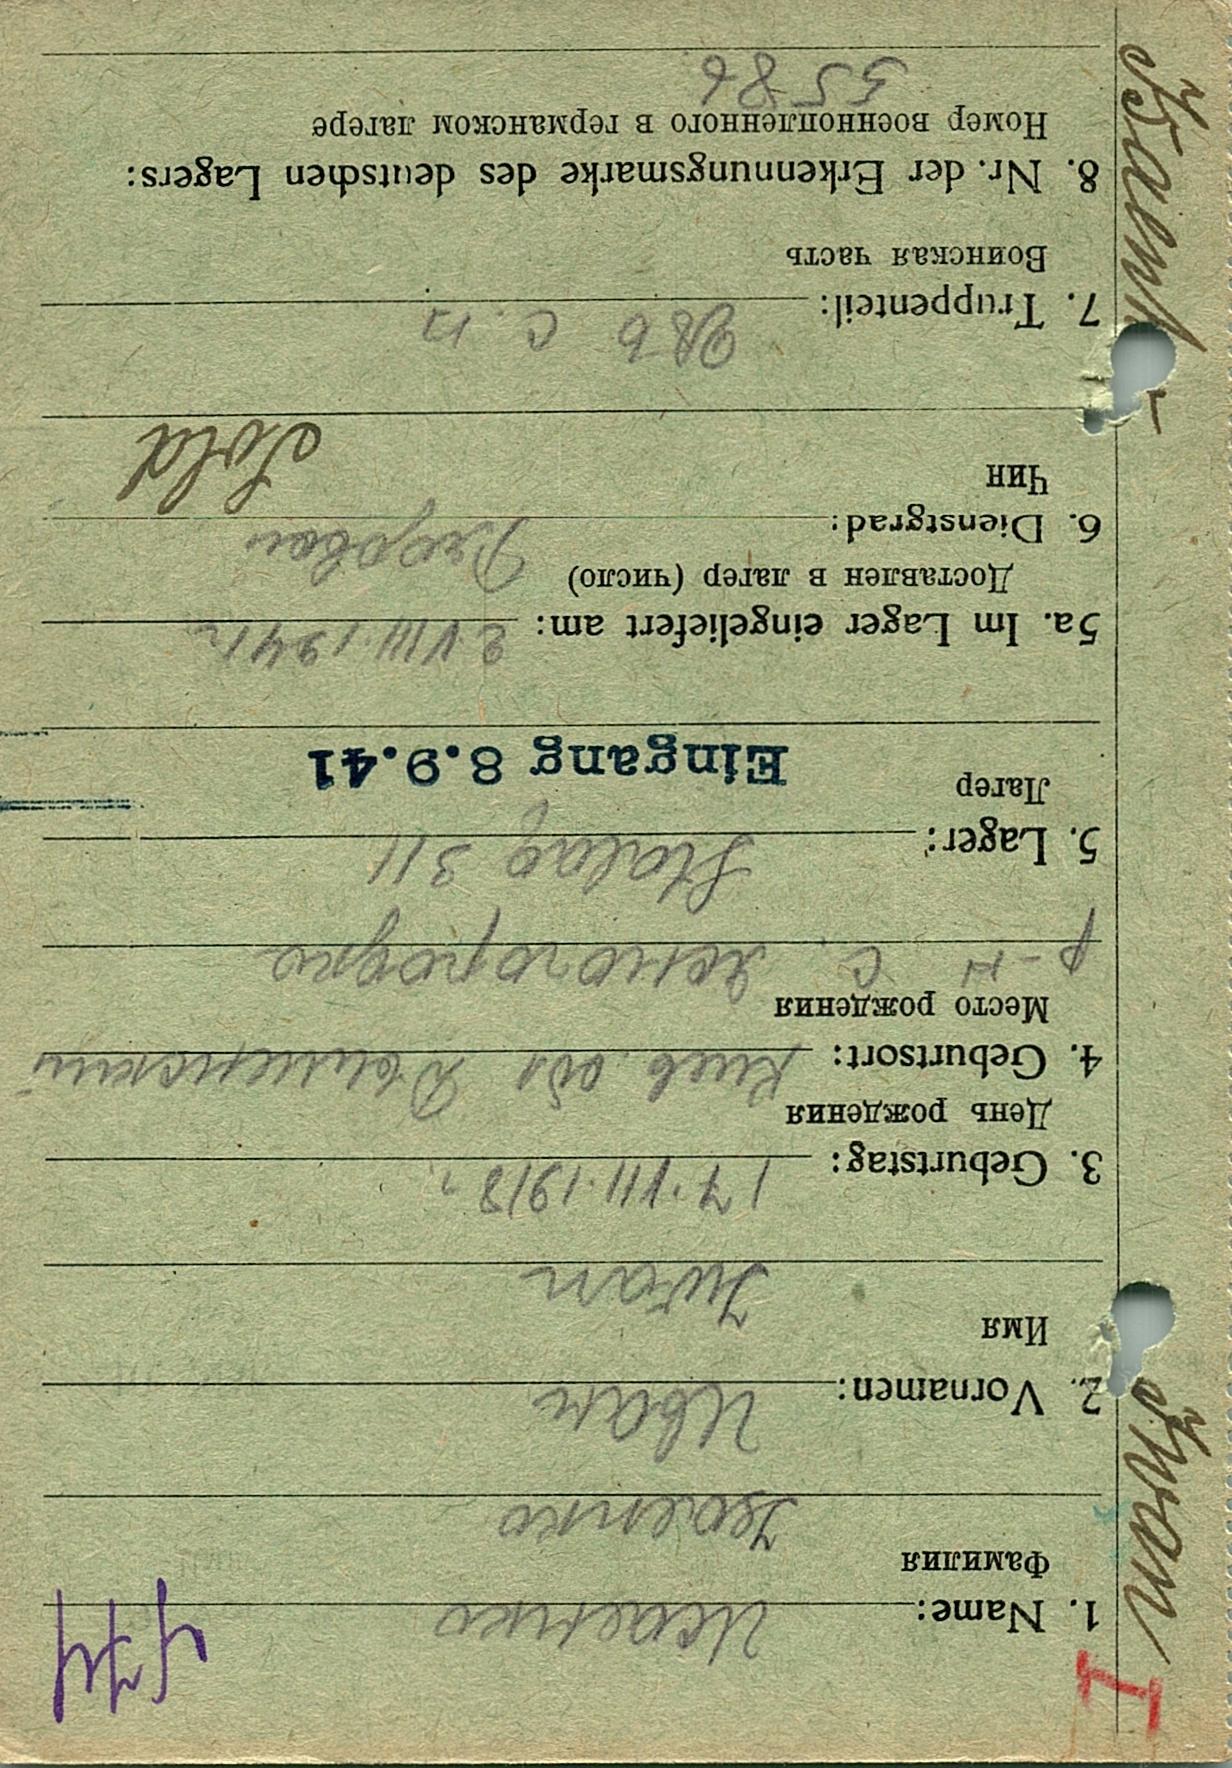 I
1. Name: Исаенко
Фамилия
Isaenko
2. Vornamen: Иван
Имя
Iwan
3. Geburtstag: 17.VII.1918 г.
День рождения
4. Geburtsort: Киев. обл Дымерский
Место рождения
р-н с. Ясногородка
5. Lager: Stalag 311
Лагер
Eingang 8.9.41
5a. Im Lager eingeliefert am: 2.VIII.1941 г.
Доставлен в лагер (число)
6. Dienstgrad: Рядовой
Чин
Sold
7. Truppenteil: с. п
Воинская часть
8. Nr. der Erkennungsmarke des deutschen Lagers:
Номер военнопленного в германском лагере
5586
Iwan